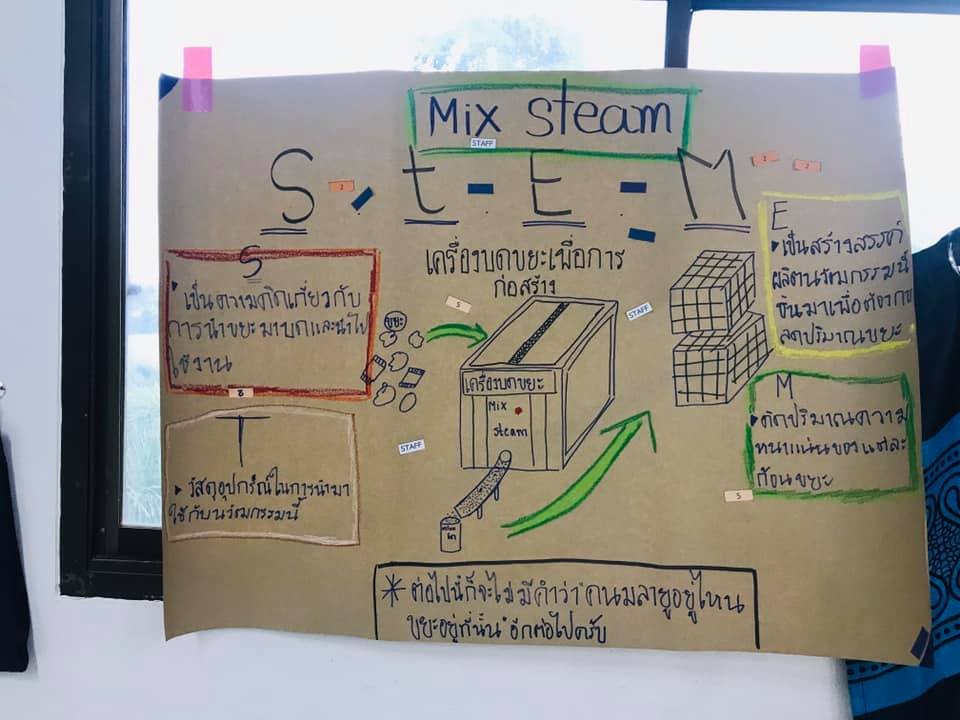 Mix steam
STAFF
S - t - E - M
2
2
2
เครื่องบดขยะเพื่อการ
ก่อสร้าง
S
เป็นความคิดเกี่ยวกับ
การนำขยะมาบดและนำไป
ใช้งาน
8
T
วัสดุอุปกรณ์ในการนำมา
ใช้กับนวัฒกรรมนี้
ขยะ
5
STAFF
เครื่องบดขยะ
Mix
steam
STAFF
E
เป็นสร้างสรรค์
ผลิตนวัฒกรรมนี้
ขึ้นมาเพื่อต้องการ
ลดปริมาณขยะ
M
คิดปริมาณความ
หนาแน่นของแต่ละ
ก้อนขยะ
5
* ต่อไปนี้ก็จะไม่มีคำว่า "คนมลายูอยู่ไหน
ขยะอยู่ที่นั้น" อีกต่อไปครับ